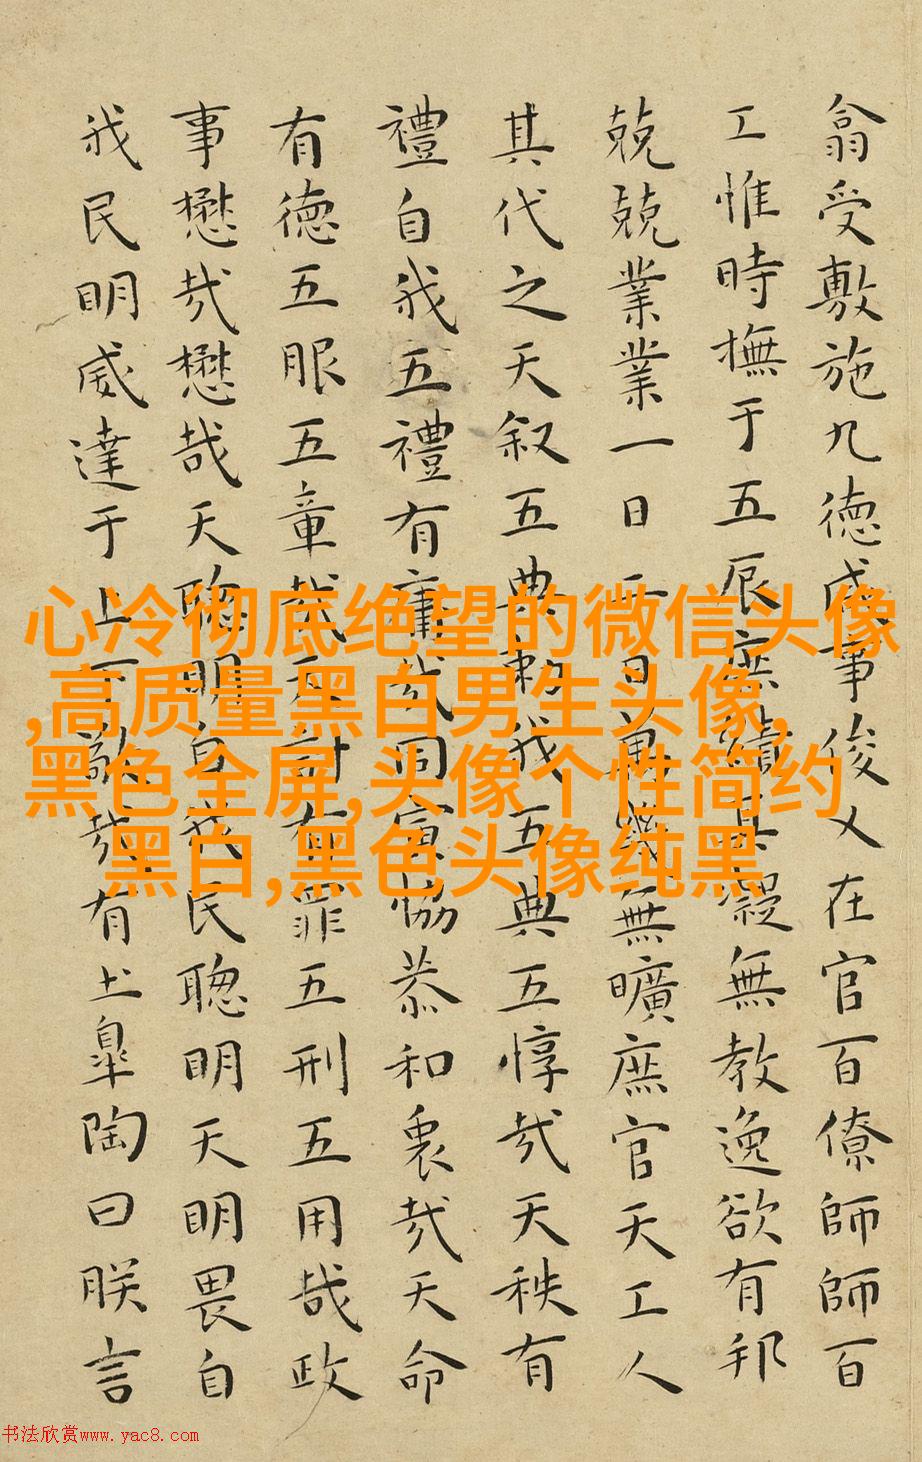 翕受敷施九德咸事俊乂在官百僚師師百
工惟時撫于五辰庶績其凝無教逸欲有邦
兢兢業業一日二日萬幾無曠庶官天工人
其代之天叙五典勑我五典五惇哉天秩有
禮自我五禮有庸哉同寅協恭和衷哉天命
有德五服五章哉天討有罪五刑五用哉政
事懋哉懋哉天聰明自我民聰明天明畏自
我民明威達于上下敬哉有土皋陶曰朕言
心冷彻底绝望的微信头像
,高质量黑白男生头像,
黑色全屏,头像个性简约
黑白,黑色头像纯黑
书法欣赏www.yac8.com